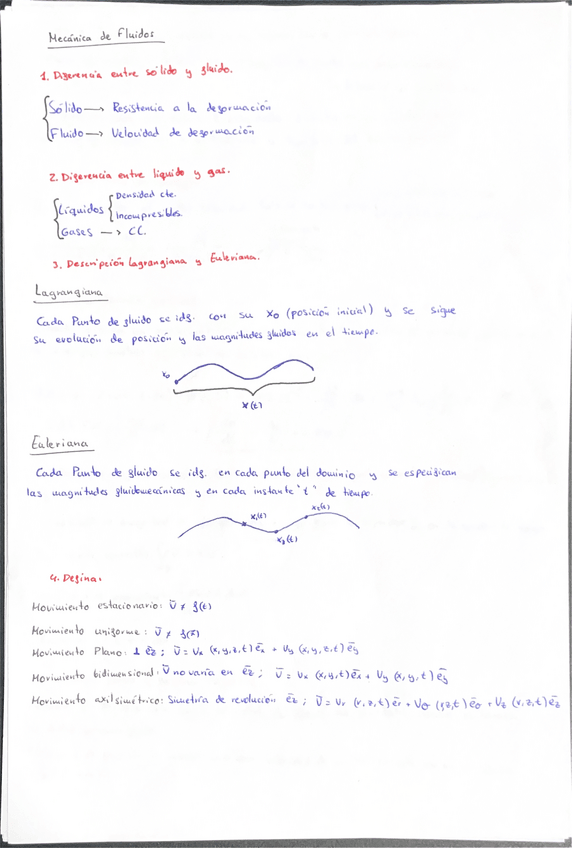 Mecánica de Fluidos
1. Diferencia entre sólido y fluido.
Sólido → Resistencia a la deformación
Fluido → Velocidad de deformación
2. Diferencia entre líquido y gas.
Líquidos { Densidad cte.
Incompresibles.
Gases → CC.
3. Descripción Lagrangiana y Euleriana.
Lagrangiana
Cada Punto de fluido se idf. con su x₀ (posición inicial) y se sigue
su evolución de posición y las magnitudes fluidos en el tiempo.
x₀
x(t)
Euleriana
Cada Punto de fluido se idf. en cada punto del dominio y se especifican
las magnitudes fluidomecánicas y en cada instante "t" de tiempo.
x₁(t)
x₂(t)
x₃(t)
4. Defina.
Movimiento estacionario: ū ≠ f(t)
Movimiento uniforme: ū ≠ f(x̄)
Movimiento Plano: ⊥ ēz ; ū = Ux (x,y,z,t) ēx + Uy (x,y,z,t) ēy
Movimiento bidimensional: ū no varía en ēz ; ū = Ux (x,y,t) ēx + Uy (x,y,t) ēy
Movimiento axilsimétrico: Simetría de revolución ēz ; ū = Ur (r,z,t) ēr + Uθ (r,z,t) ēθ + Uz (r,z,t) ēz